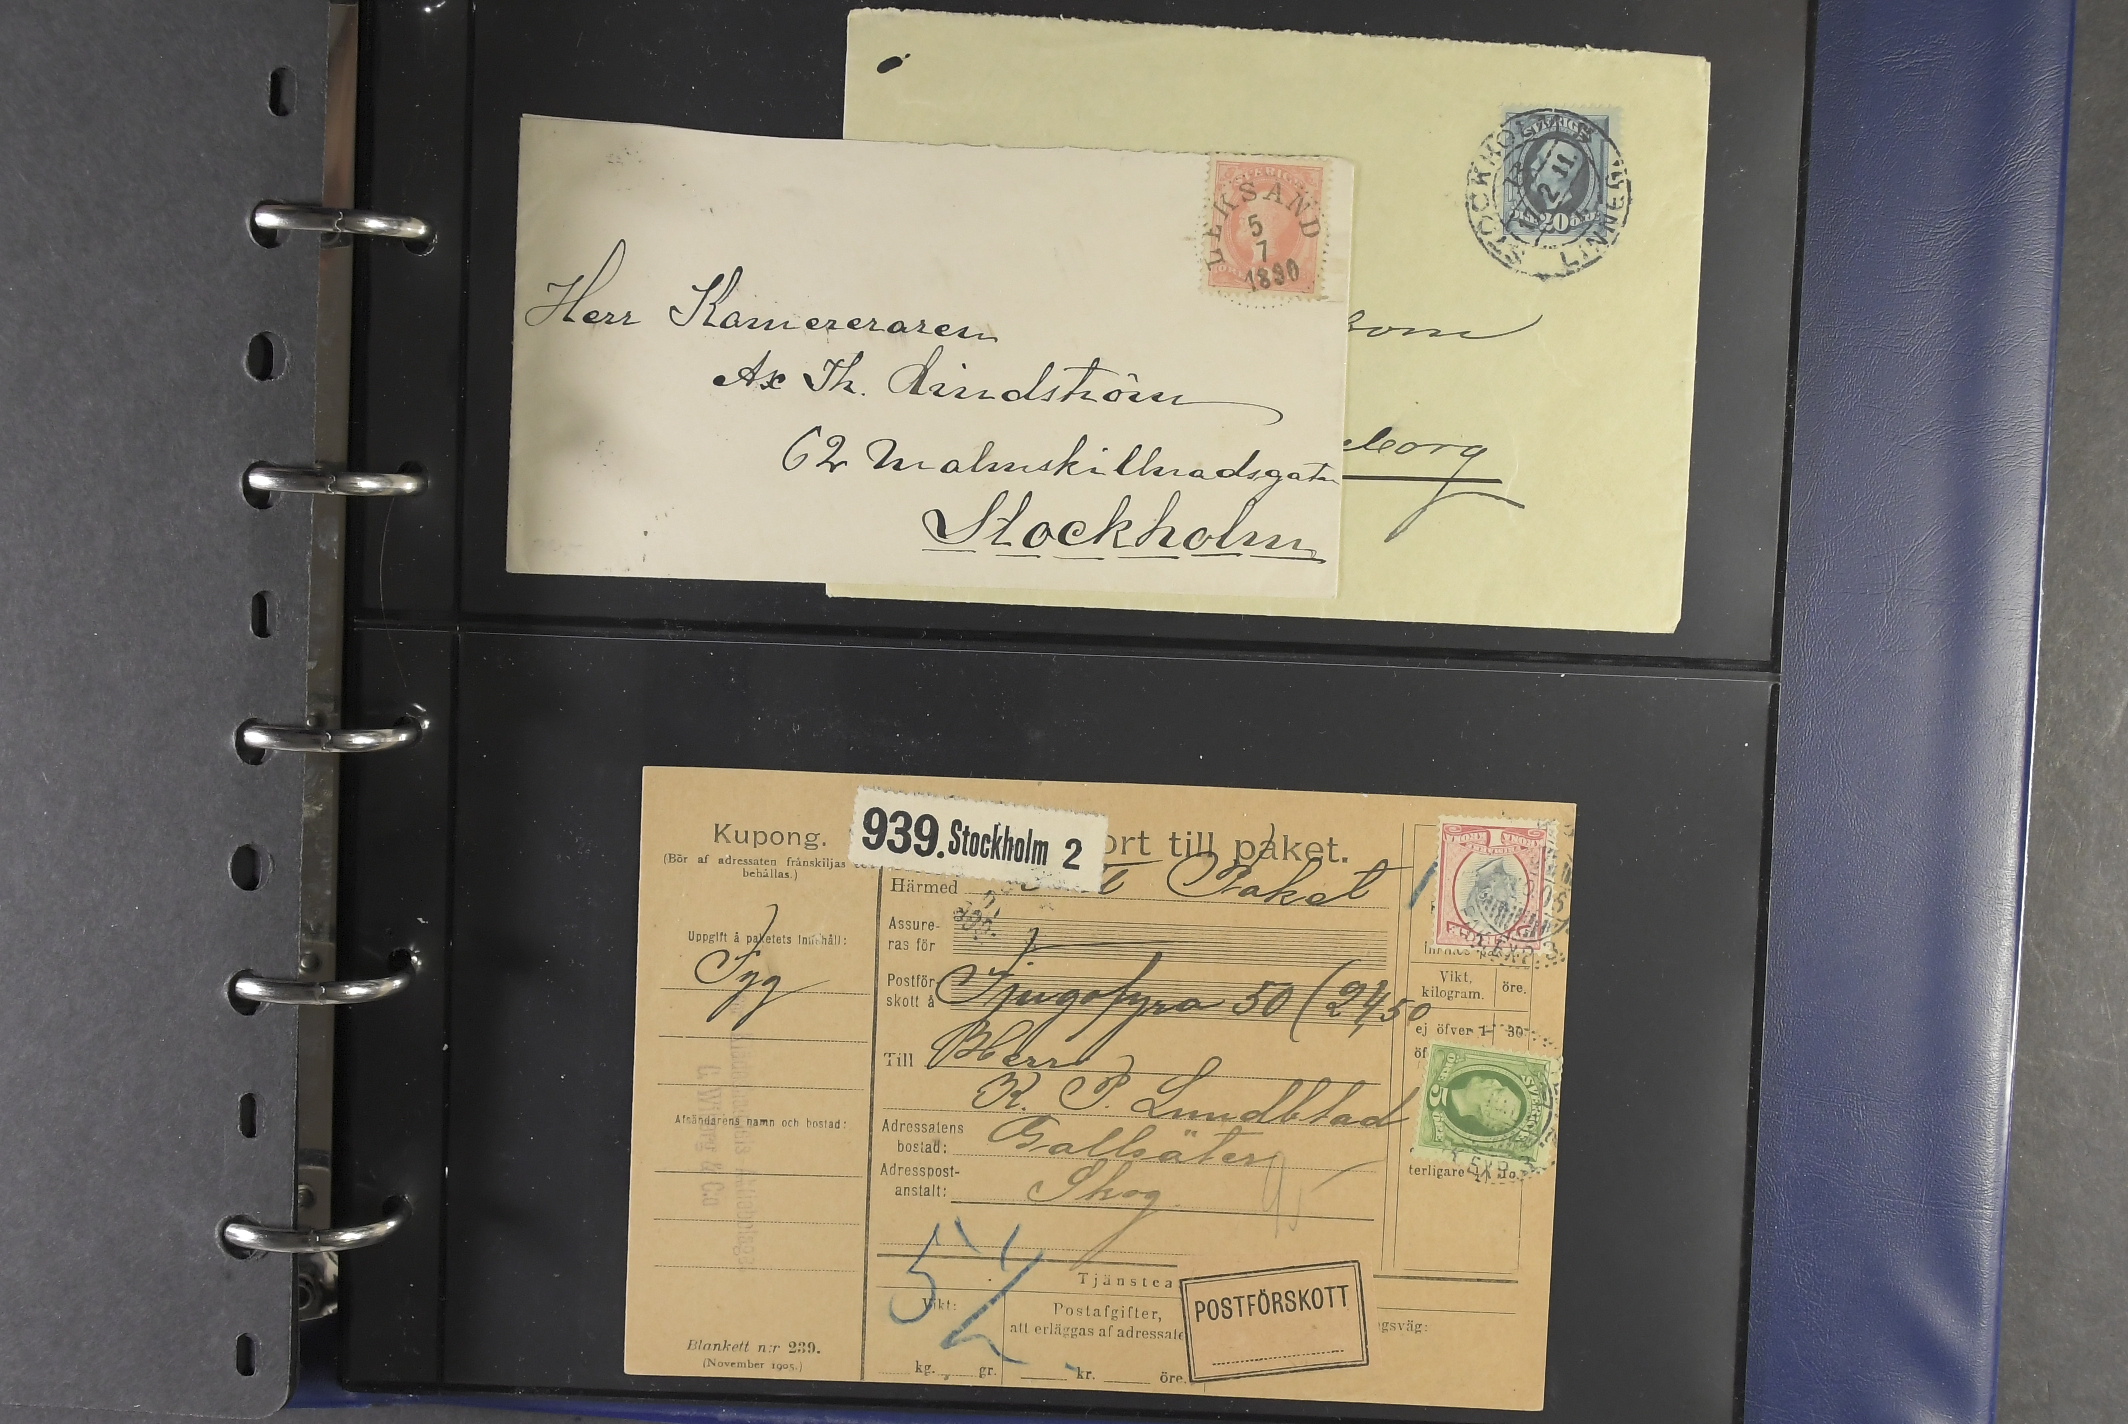 LEKSAND
5
7
1890
Herr Kamereraren
Ax Th. Lindström
62 Malmskillnadsgatan
Stockholm
SVERIGE
20 ÖRE
STOCKHOLM
LINNÉG.
2.11.
borg
Kupong.
(Bör af adressaten frånskiljas
behållas.)
939. Stockholm 2
ort till paket.
Härmed Paket
Assure-
ras för
Uppgift å paketets innehåll:
Tyg
Postför-
skott å Tjugofyra 50 (24,50
Vikt, kilogram. öre.
ej öfver 1 30
Till Herr
K. P. Lundblad
Afsändarens namn och bostad:
C. Wiberg & Co
Adressatens
bostad: Gallsäter
Adresspost-
anstalt: Skog
terligare
5
SVERIGE
EXP. 3
Tjänstea
Vikt:
Postafgifter,
att erläggas af adressate
kg. gr. kr. öre.
POSTFÖRSKOTT
gsväg:
Blankett n:r 239.
(November 1905.)